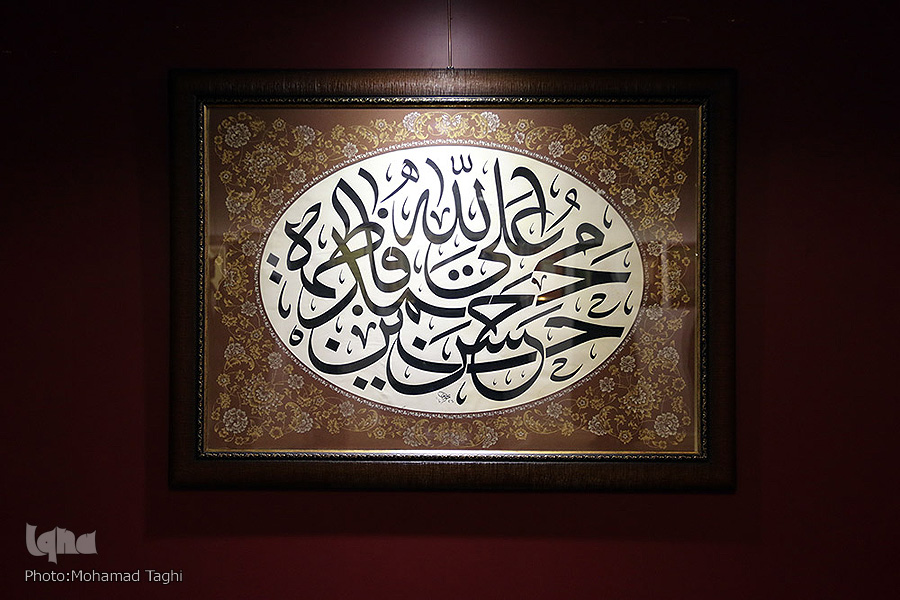 الله
محمد
علی
فاطمة
حسن
حسین
Iqna
Photo:Mohamad Taghi